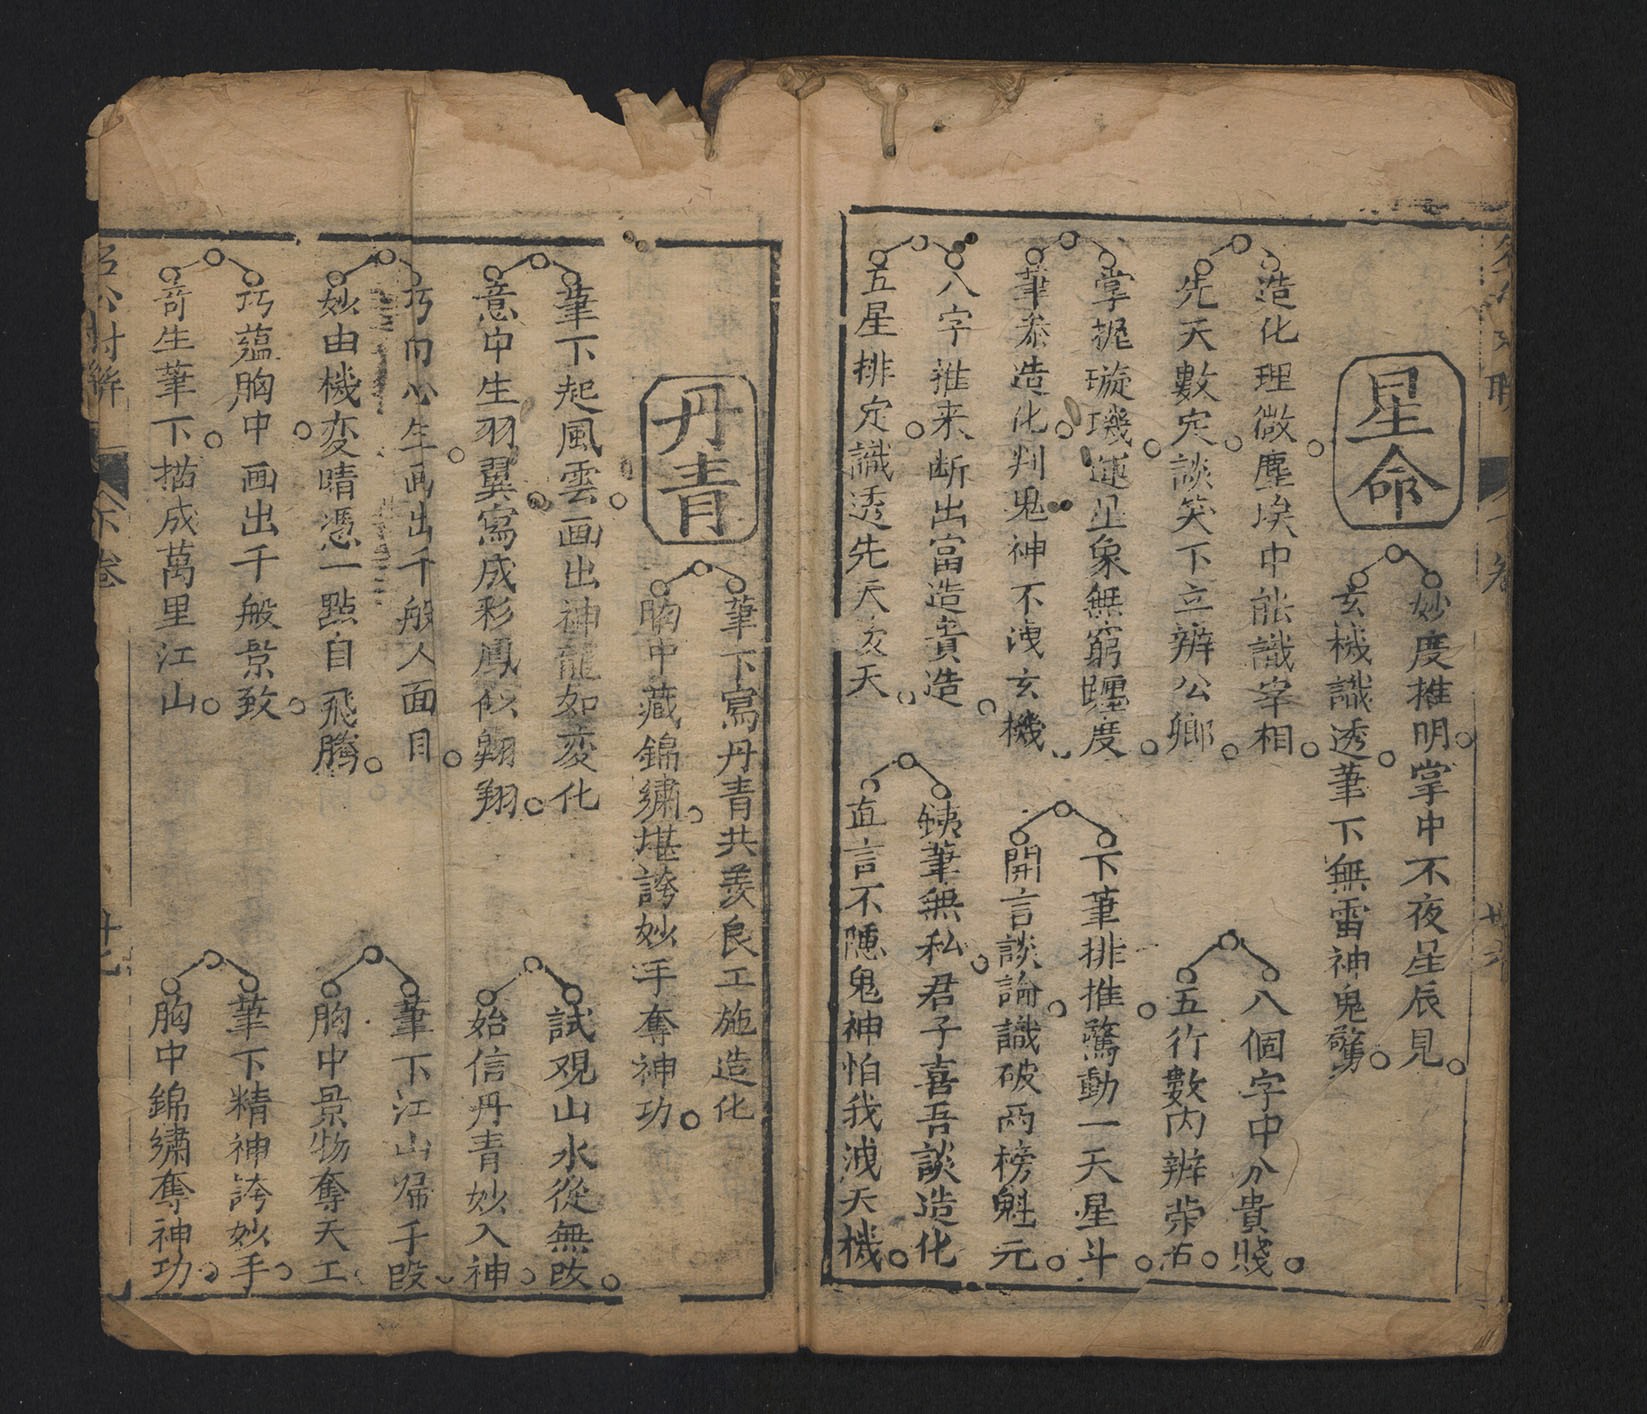 星命
妙度推明掌中不夜星辰見
玄機識透筆下無雷神鬼驚
造化理微塵埃中能識宰相
先天數定談笑下立辨公卿
八個字中分貴賤
五行數內辨荣右
掌握璇璣運星象無窮躔度
筆叅造化判鬼神不洩玄機
下筆排推驚動一天星斗
開言談論識破兩榜魁元
八字推来断出富造貴造
五星排定識透先天後天
銕筆無私君子喜吾談造化
直言不隱鬼神怕我洩天機
丹青
筆下寫丹青共羨良工施造化
胸中藏錦繡堪誇妙手奪神功
筆下起風雲画出神龍如変化
意中生羽翼寫成彩鳳似翱翔
試观山水從無改
始信丹青妙入神
巧向心生画出千般人面目
妙由機変睛憑一點自飛騰
筆下江山歸手段
胸中景物奪天工
巧蘊胸中画出千般景致
奇生筆下描成萬里江山
筆下精神誇妙手
胸中錦繡奪神功
下卷